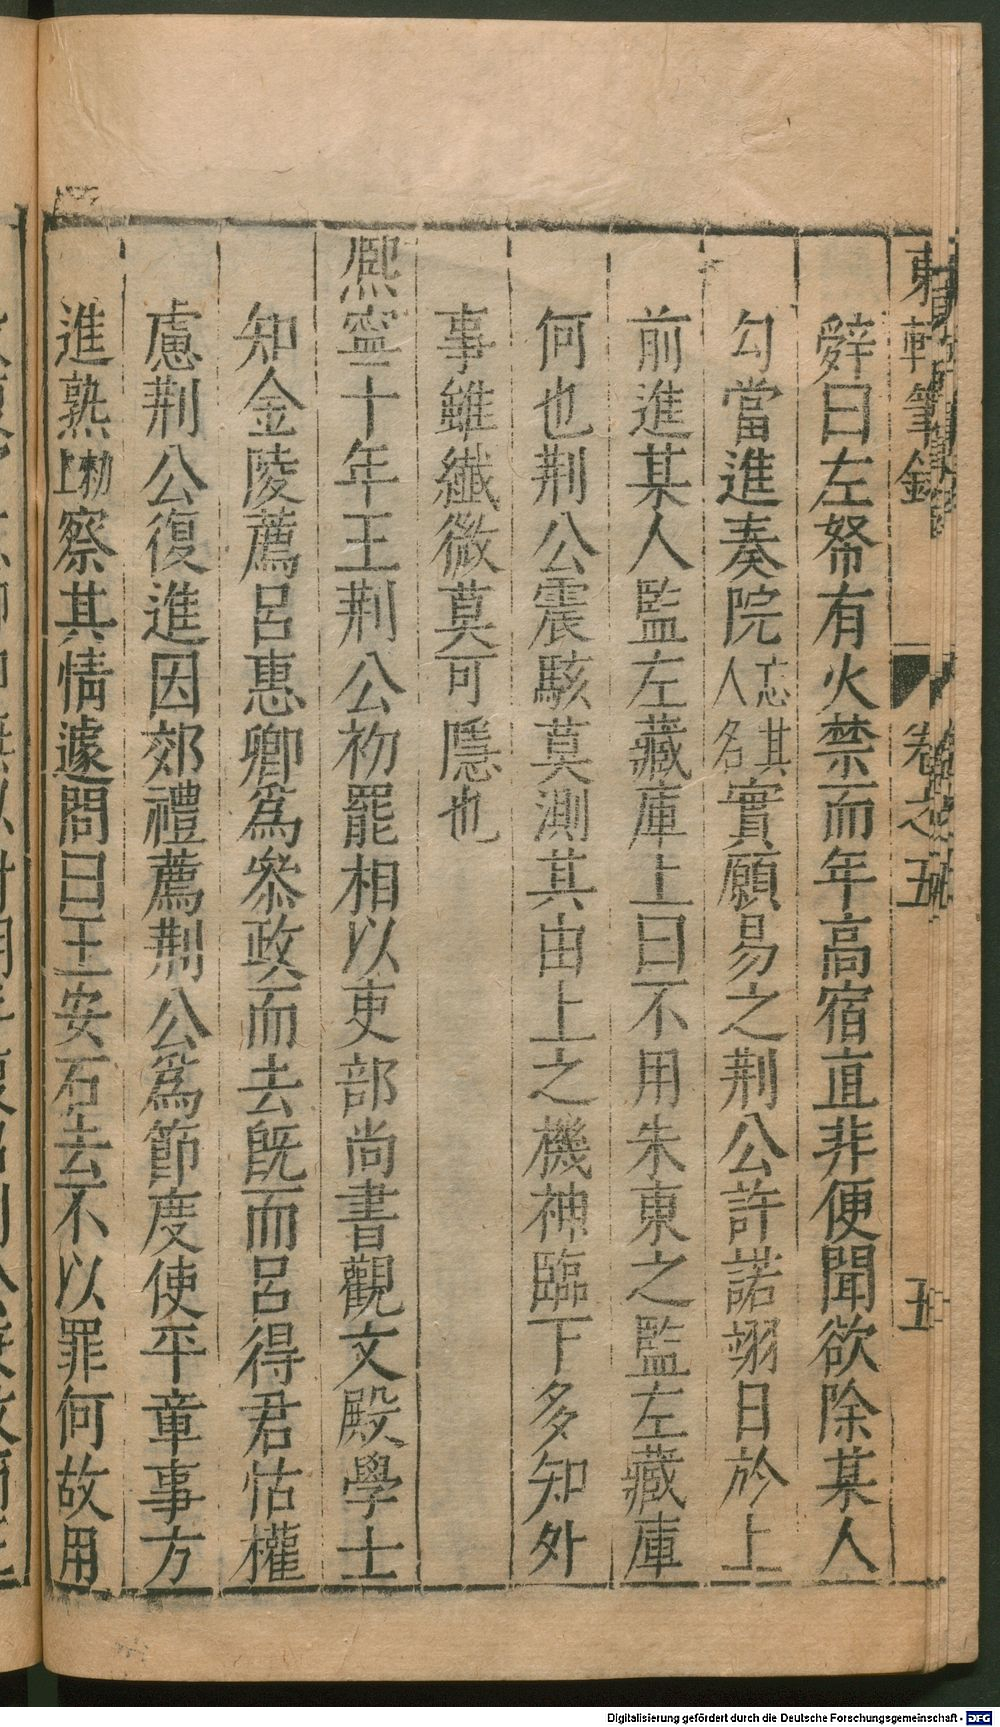 東軒筆錄 卷之五 五
辭曰左帑有火禁而年高宿直非便聞欲除某人
勾當進奏院忘其人名實願易之荆公許諾翊日於上
前進某人監左藏庫上曰不用朱東之監左藏庫
何也荆公震駭莫測其由上之機神臨下多知外
事雖纖微莫可隱也
熙寧十年王荆公初罷相以吏部尚書觀文殿學士
知金陵薦呂惠卿爲叅政而去旣而呂得君怙權
慮荆公復進因郊禮薦荆公爲節度使平章事方
進熟上察其情遽問曰王安石去不以罪何故用
Digitalisierung gefördert durch die Deutsche Forschungsgemeinschaft - DFG